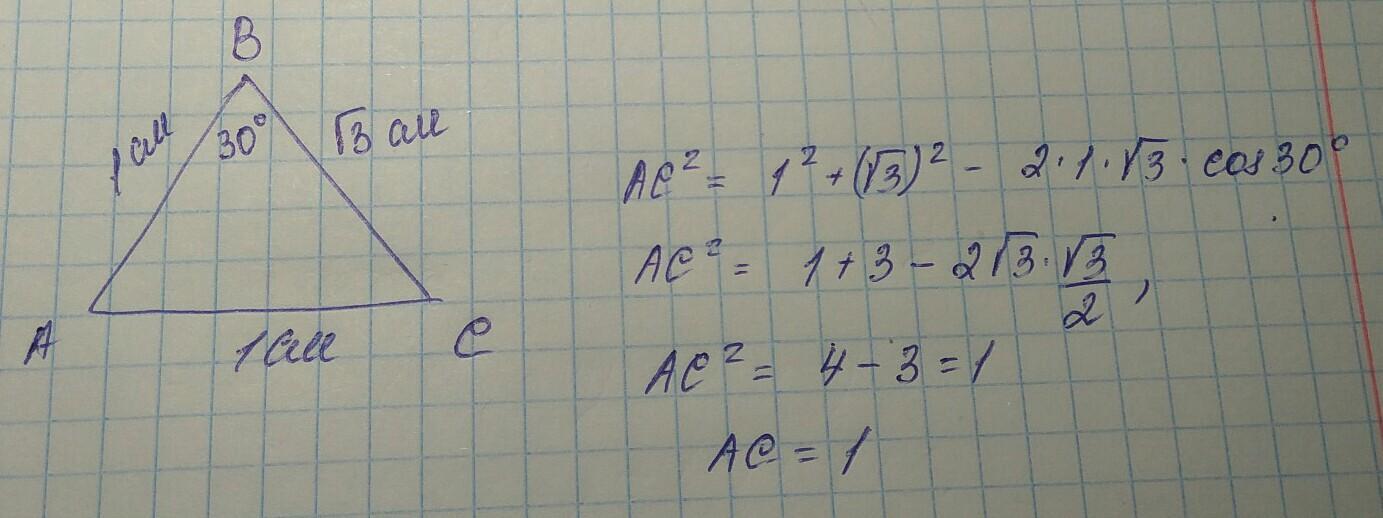 B
1 см
30°
√3 см
A
1 см
C
AC² = 1² + (√3)² - 2·1·√3·cos30°
AC² = 1 + 3 - 2√3·√3/2,
AC² = 4 - 3 = 1
AC = 1